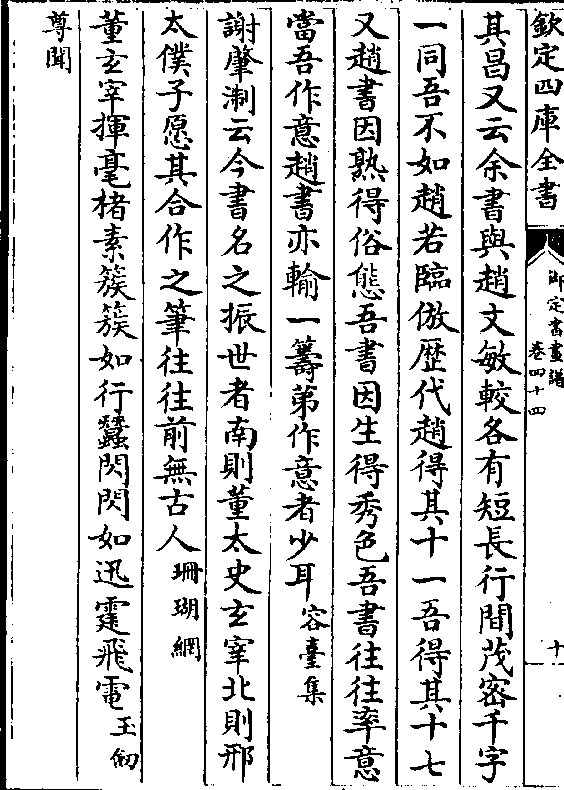 欽定四庫全書
御定書畫譜
卷四十四
十
其昌又云余書與趙文敏較各有短長行間茂密千字
一同吾不如趙若臨倣歴代趙得其十一吾得其十七
又趙書因熟得俗態吾書因生得秀色吾書往往率意
當吾作意趙書亦輸一籌第作意者少耳容臺集
謝肇淛云今書名之振世者南則董太史玄宰北則邢
太僕子愿其合作之筆往往前無古人珊瑚網
董玄宰揮毫楮素簇簇如行蠶閃閃如迅霆飛電玉匒
尊聞